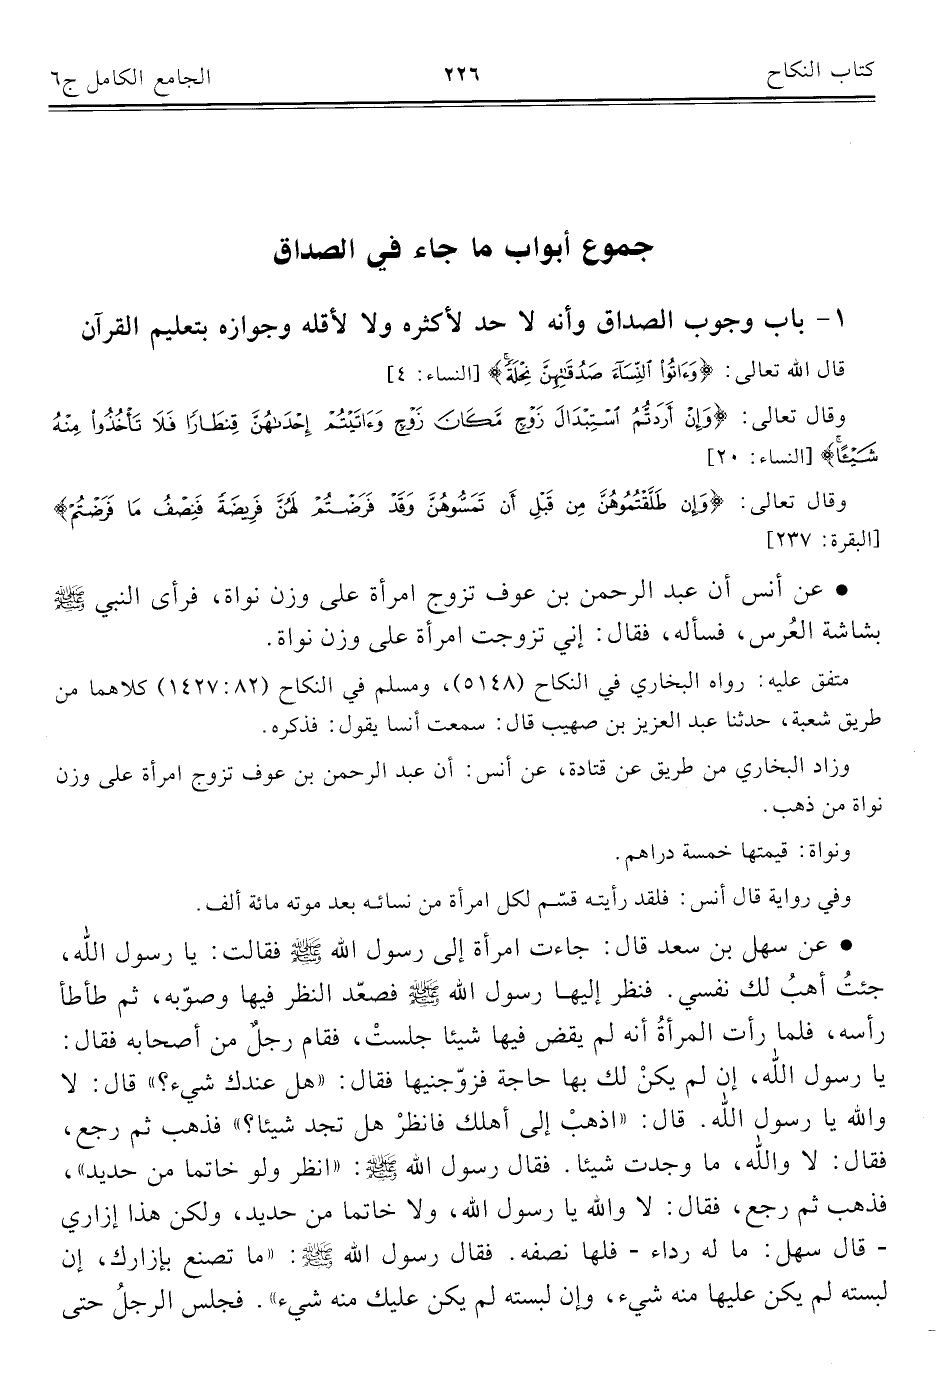 كتاب النكاح ٢٢٦ الجامع الكامل ج٦
جموع أبواب ما جاء في الصداق
١- باب وجوب الصداق وأنه لا حد لأكثره ولا لأقله وجوازه بتعليم القرآن
قال الله تعالى: ﴿وَءَاتُوا۟ ٱلنِّسَآءَ صَدُقَـٰتِهِنَّ نِحْلَةً ۚ﴾ [النساء: ٤]
وقال تعالى: ﴿وَإِنْ أَرَدتُّمُ ٱسْتِبْدَالَ زَوْجٍ مَّكَانَ زَوْجٍ وَءَاتَيْتُمْ إِحْدَىٰهُنَّ قِنطَارًا فَلَا تَأْخُذُوا۟ مِنْهُ
شَيْـًٔا ۚ﴾ [النساء: ٢٠]
وقال تعالى: ﴿وَإِن طَلَّقْتُمُوهُنَّ مِن قَبْلِ أَن تَمَسُّوهُنَّ وَقَدْ فَرَضْتُمْ لَهُنَّ فَرِيضَةً فَنِصْفُ مَا فَرَضْتُمْ﴾
[البقرة: ٢٣٧]
● عن أنس أن عبد الرحمن بن عوف تزوج امرأة على وزن نواة، فرأى النبي ﷺ
بشاشة العُرس، فسأله، فقال: إني تزوجت امرأة على وزن نواة.
متفق عليه: رواه البخاري في النكاح (٥١٤٨)، ومسلم في النكاح (١٤٢٧:٨٢) كلاهما من
طريق شعبة، حدثنا عبد العزيز بن صهيب قال: سمعت أنسا يقول: فذكره.
وزاد البخاري من طريق عن قتادة، عن أنس: أن عبد الرحمن بن عوف تزوج امرأة على وزن
نواة من ذهب.
ونواة: قيمتها خمسة دراهم.
وفي رواية قال أنس: فلقد رأيته قسّم لكل امرأة من نسائه بعد موته مائة ألف.
● عن سهل بن سعد قال: جاءت امرأة إلى رسول الله ﷺ فقالت: يا رسول الله،
جئتُ أهبُ لك نفسي. فنظر إليها رسول الله ﷺ فصعّد النظر فيها وصوّبه، ثم طأطأ
رأسه، فلما رأت المرأةُ أنه لم يقض فيها شيئا جلستْ، فقام رجلٌ من أصحابه فقال:
يا رسول الله، إن لم يكنْ لك بها حاجة فزوّجنيها فقال: «هل عندك شيء؟» قال: لا
والله يا رسول الله. قال: «اذهبْ إلى أهلك فانظرْ هل تجد شيئا؟» فذهب ثم رجع،
فقال: لا والله، ما وجدت شيئا. فقال رسول الله ﷺ: «انظر ولو خاتما من حديد»،
فذهب ثم رجع، فقال: لا والله يا رسول الله، ولا خاتما من حديد، ولكن هذا إزاري
- قال سهل: ما له رداء - فلها نصفه. فقال رسول الله ﷺ: «ما تصنع بإزارك، إن
لبسته لم يكن عليها منه شيء، وإن لبسته لم يكن عليك منه شيء». فجلس الرجلُ حتى